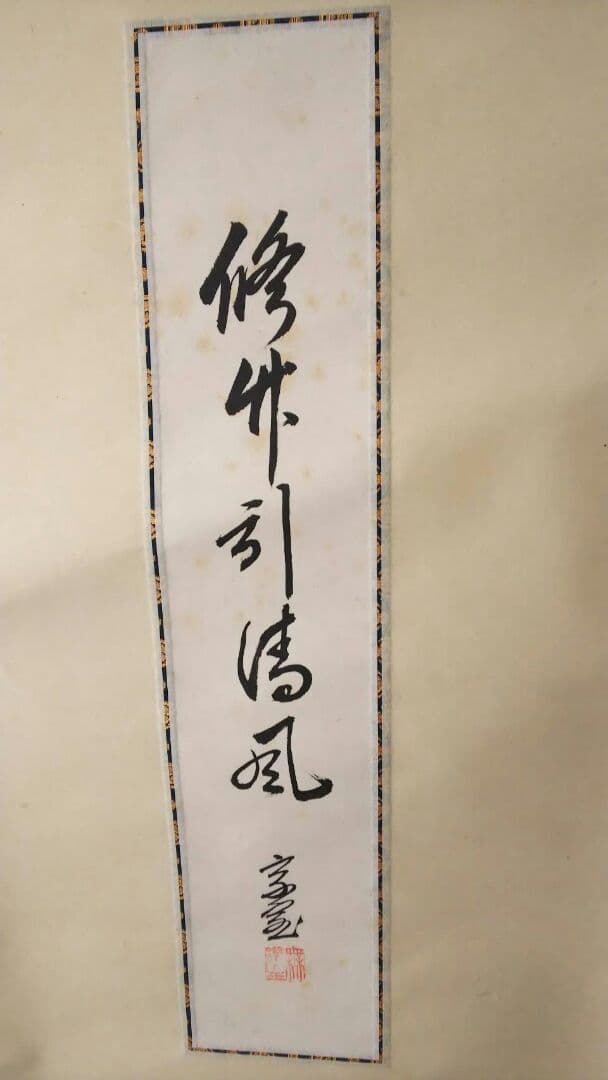 修竹引清風